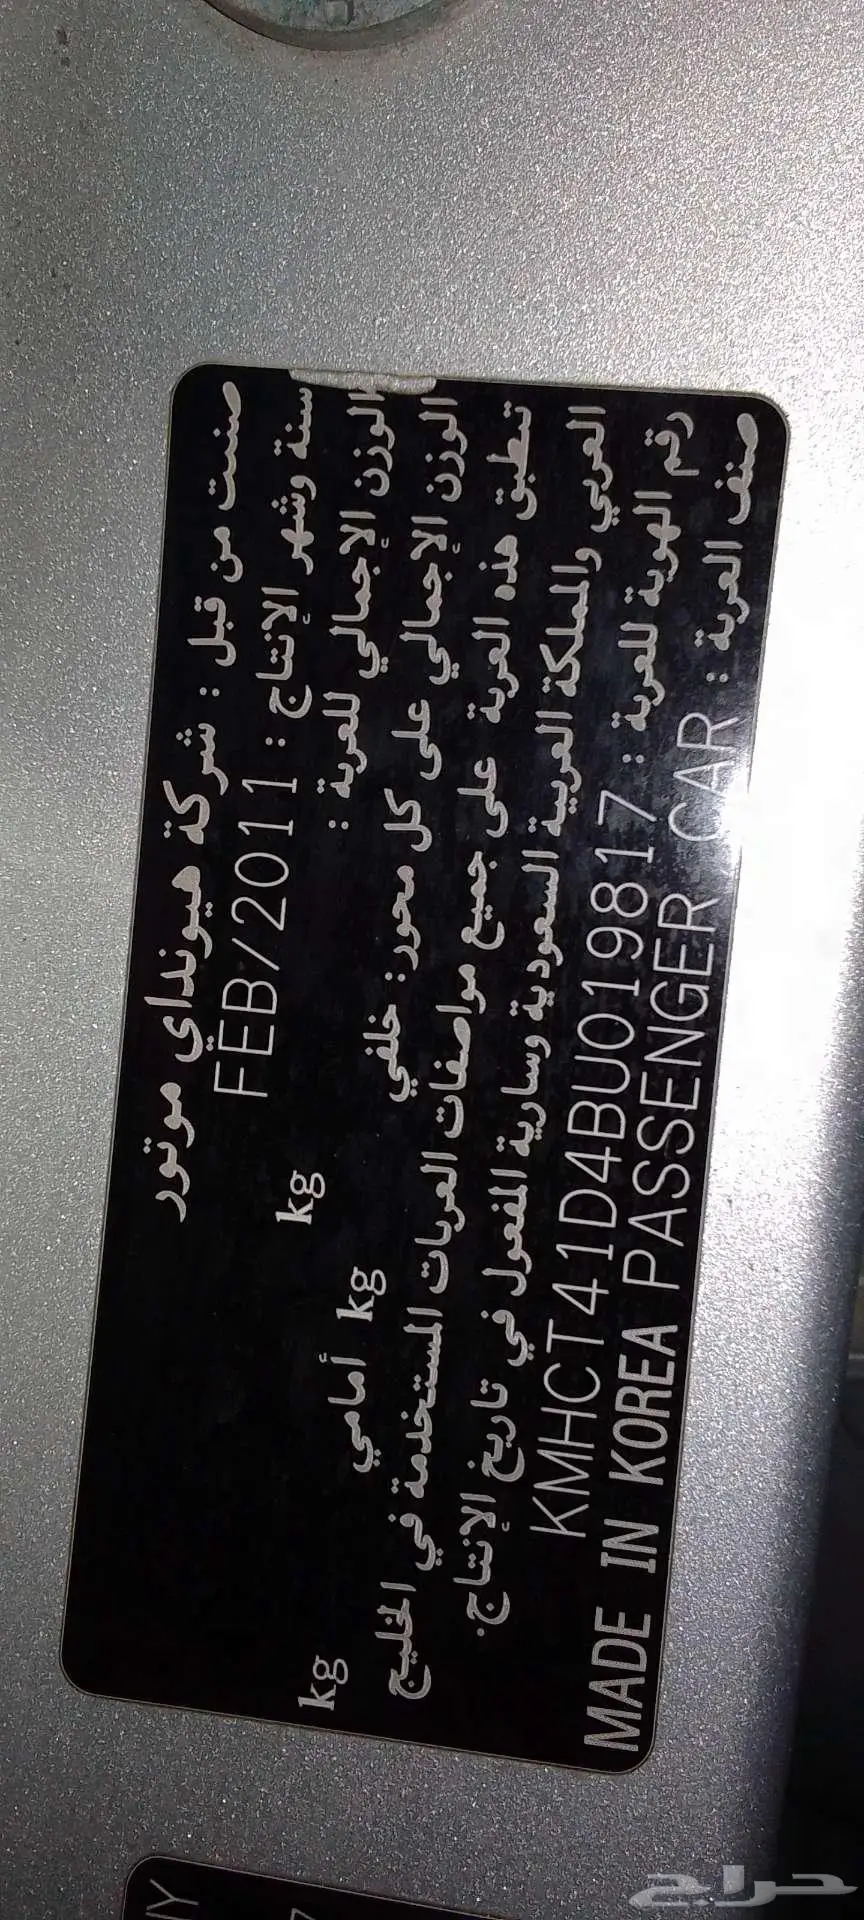 صنت من قبل : شركة هيونداي موتور
سنة وشهر الإنتاج : FEB/2011
الوزن الإجمالي للعربة : kg
الوزن الإجمالي على كل محور: خلفي kg أمامي kg
تنطبق هذه العربة على جميع مواصفات العربات المستخدمة في الخليج
العربي والمملكة العربية السعودية وسارية المفعول في تاريخ الإنتاج.
رقم الهوية للعربة : KMHCT41D4BU019817
صنف العربة : PASSENGER CAR MADE IN KOREA
حراج